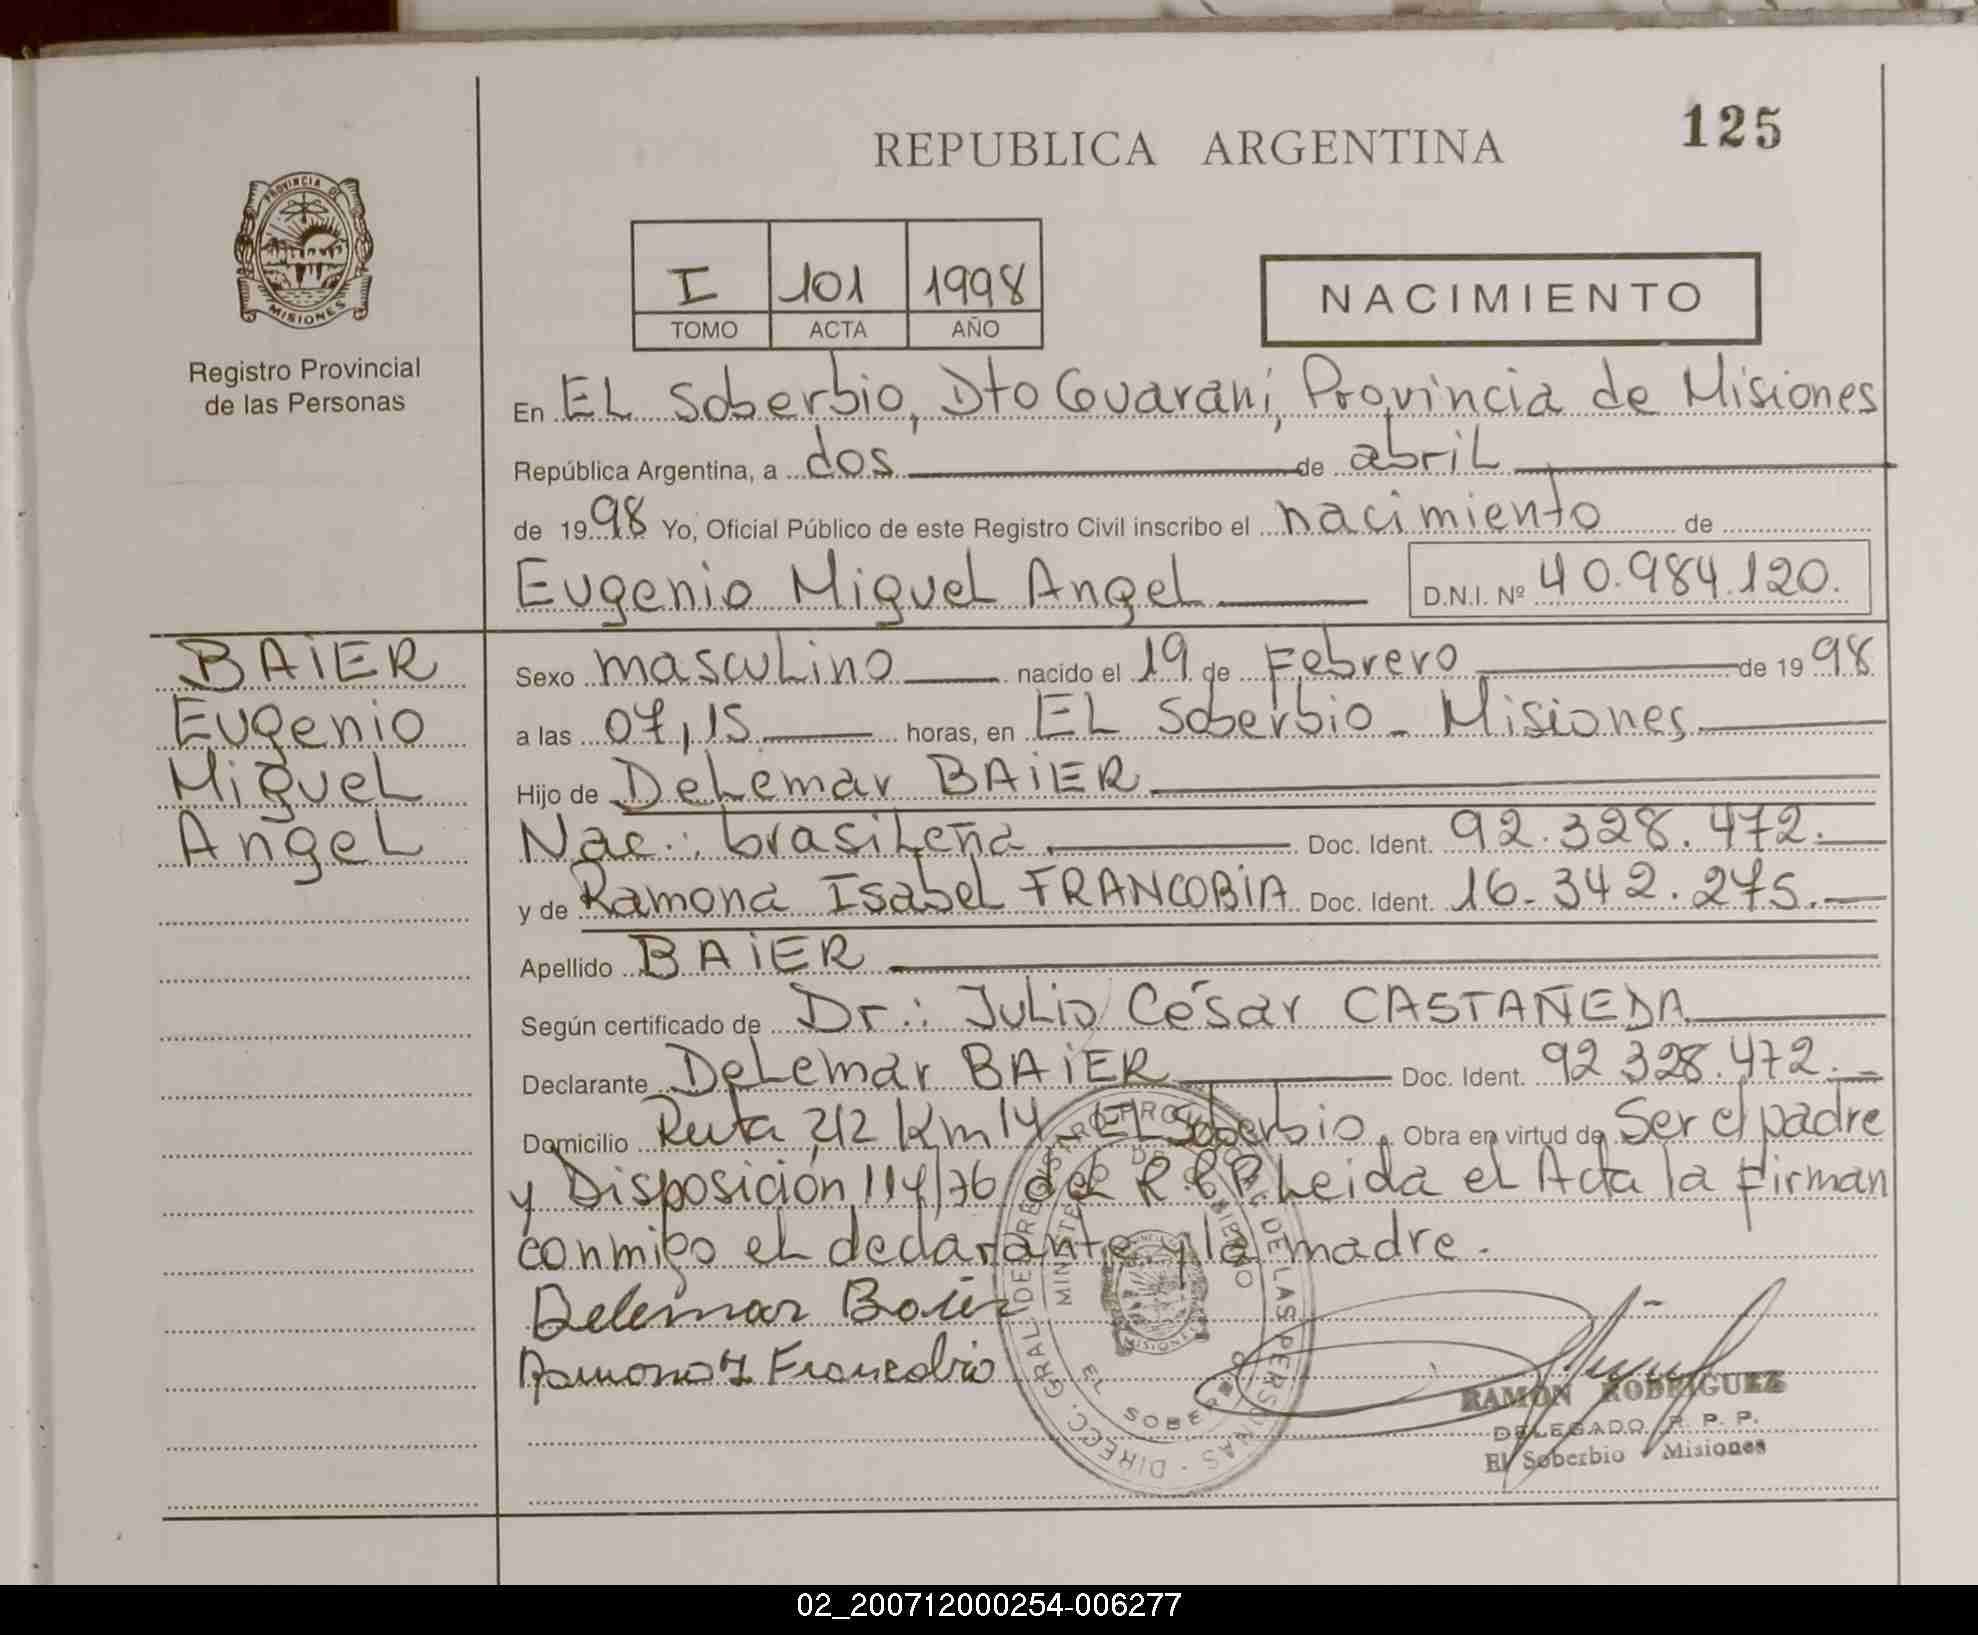 125
REPUBLICA ARGENTINA
PROVINCIA DE
MISIONES
Registro Provincial
de las Personas
I 101 1998
TOMO ACTA AÑO
NACIMIENTO
En EL Soberbio, Dto Guaraní, Provincia de Misiones
República Argentina, a dos de abril
de 1998 Yo, Oficial Público de este Registro Civil inscribo el nacimiento de
Eugenio Miguel Angel D.N.I. Nº 40.984.120.
BAiER
Eugenio
Miguel
Angel
Sexo masculino nacido el 19 de Febrero de 1998
a las 07,15 horas, en EL Soberbio - Misiones
Hijo de Delemar BAiER
Nac.: brasileña. Doc. Ident. 92.328.472.
y de Ramona Isabel FRANCOBiA Doc. Ident. 16.342.275.
Apellido BAiER
Según certificado de Dr.: Julio César CASTAÑEDA
Declarante Delemar BAiER Doc. Ident. 92.328.472.
Domicilio Ruta 212 Km 14 - EL Soberbio. Obra en virtud de Ser el padre
y Disposición 114/76 del R.P.P. Leida el Acta la firman
conmigo el declarante y la madre.
Delemar Baier
Ramona I Francobia
DIRECC. GRAL. DE REGISTRO PROV. DE LAS PERSONAS
MINISTERIO DE GOBIERNO
MISIONES
EL SOBERBIO
RAMON RODRIGUEZ
DELEGADO R. P. P.
El Soberbio Misiones
02_200712000254-006277